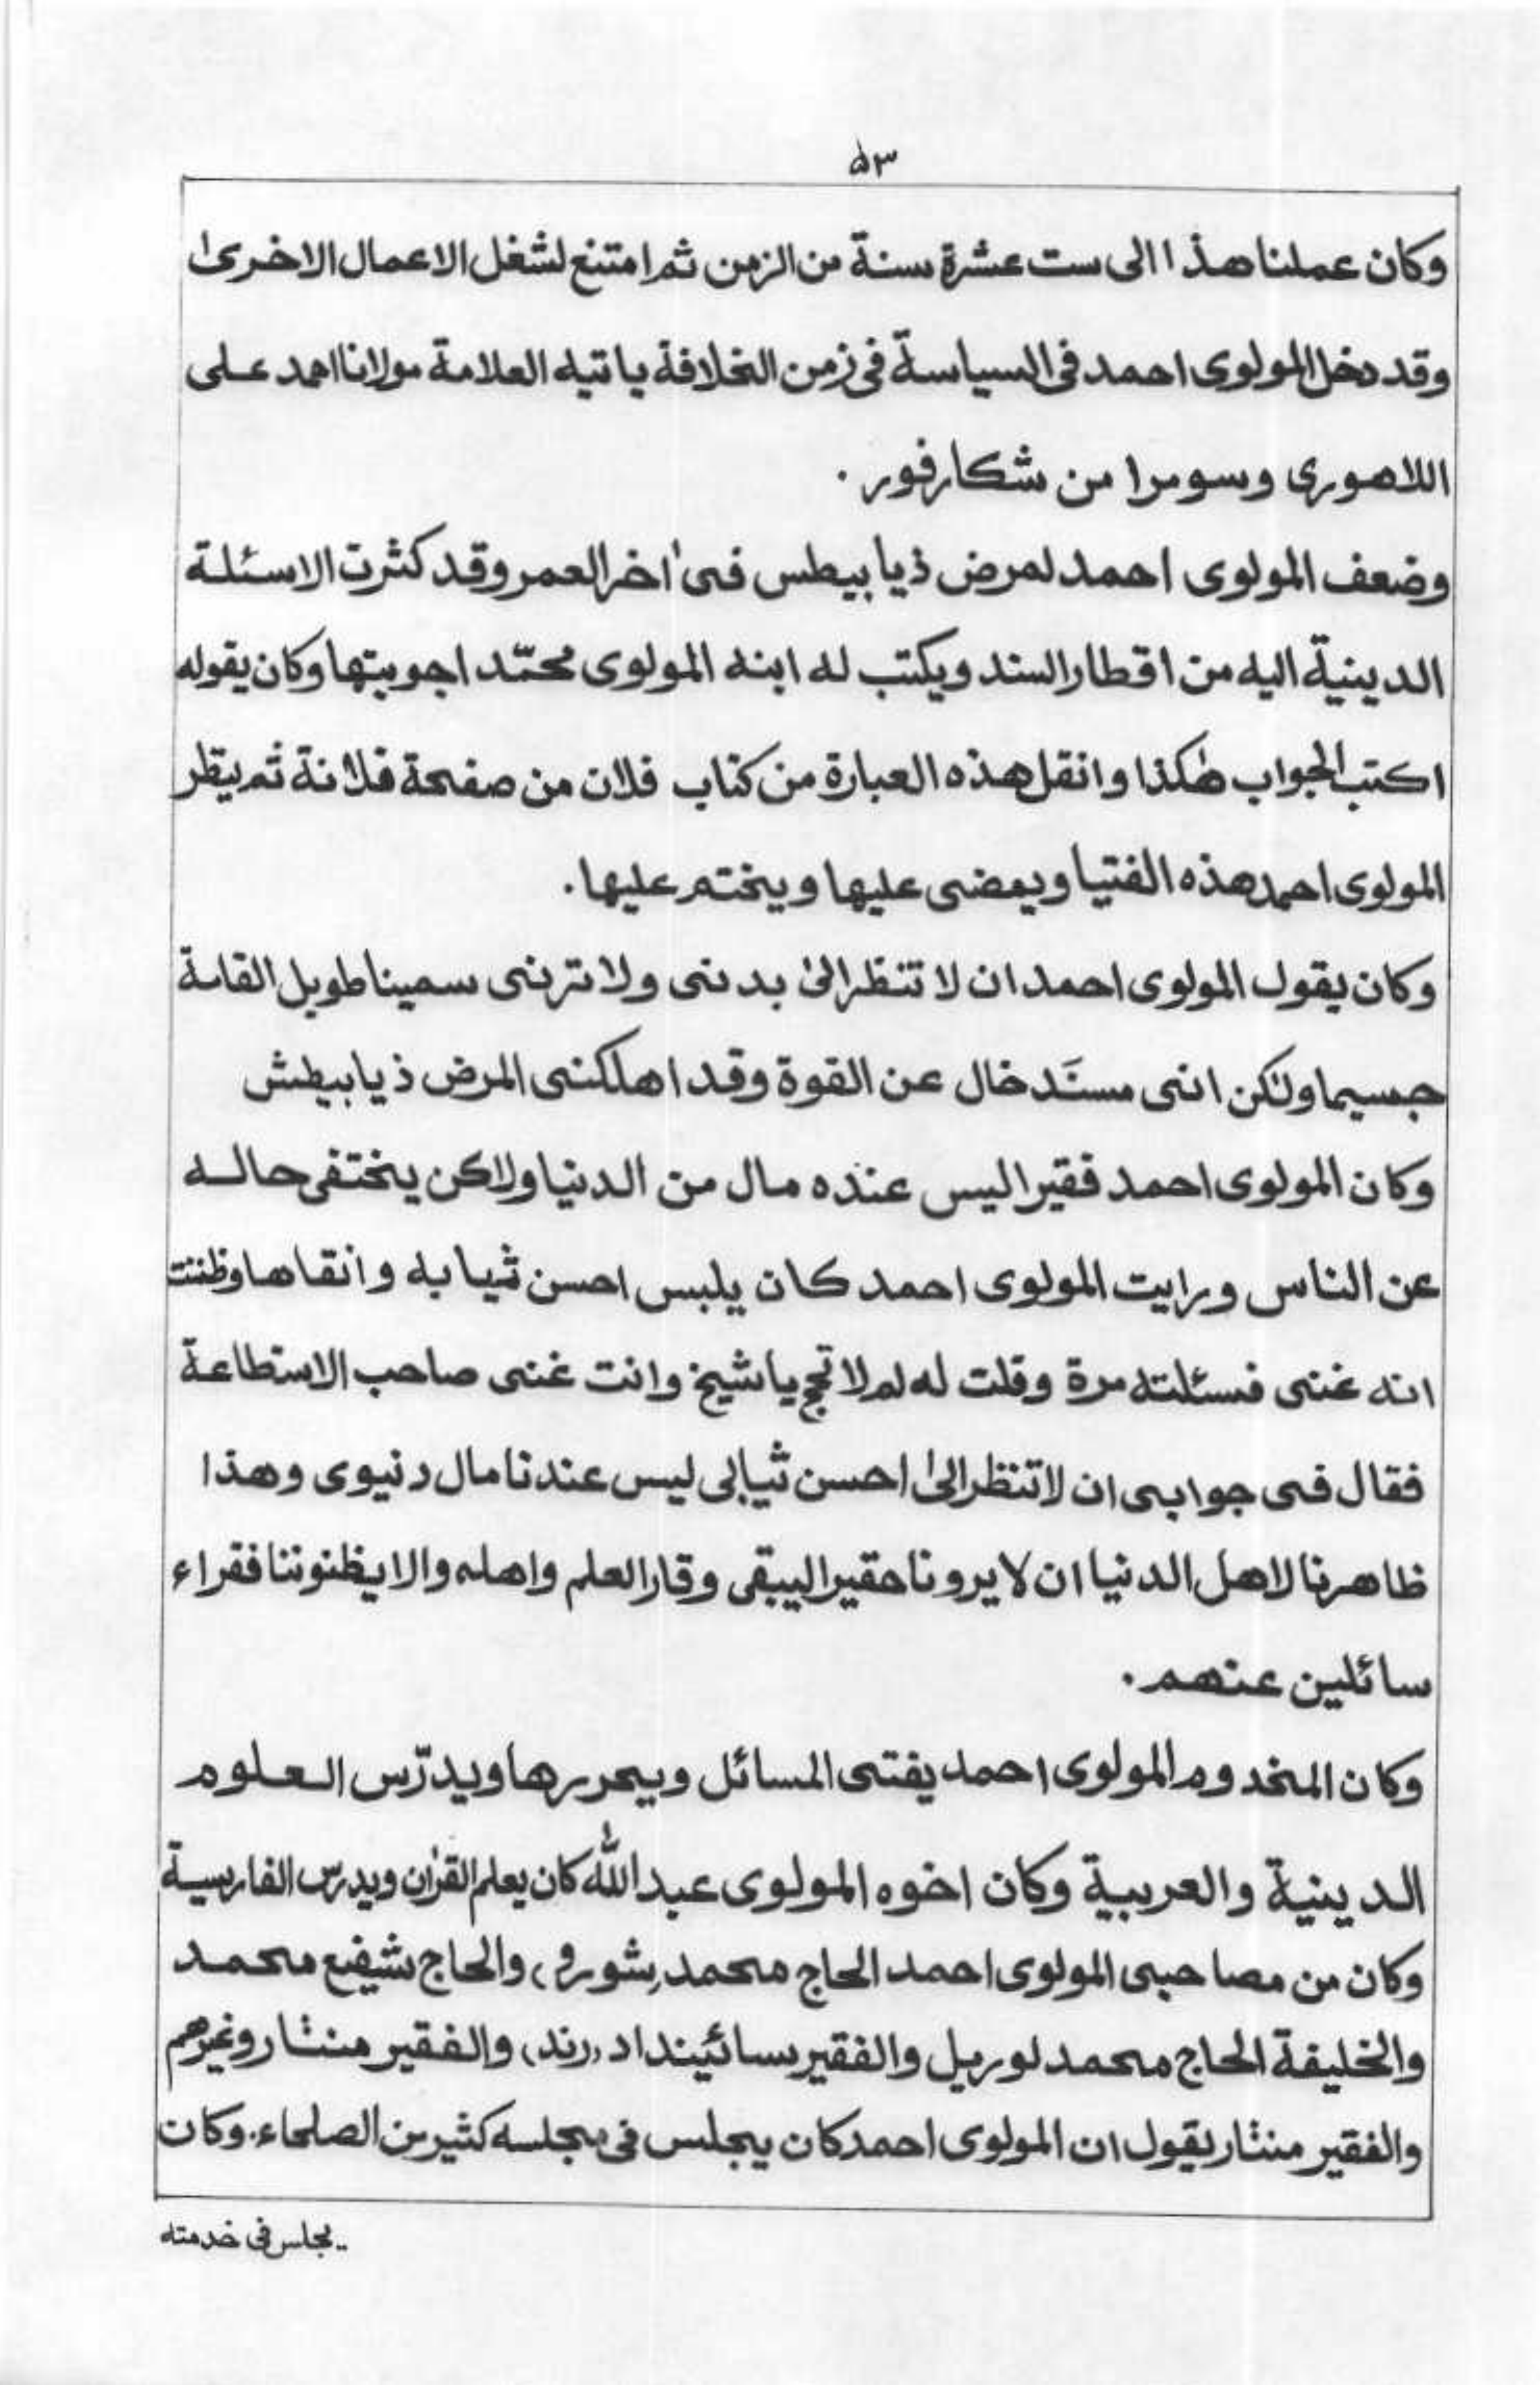 ۵۳
وكان عملنا هذا الى ست عشرة سنة من الزمن ثم امتنع لشغل الاعمال الاخرىٰ
وقد دخل المولوى احمد فى السياسة فى زمن الخلافة ياتيه العلامة مولانا احمد على
اللاهورى وسومرا من شكارفور .
وضعف المولوى احمد لمرض ذيابيطس فى اٰخر العمر وقد كثرت الاسئلة
الدينية اليه من اقطار السند ويكتب له ابنه المولوى محمّد اجوبتها وكان يقوله
اكتب الجواب هٰكذا وانقل هذه العبارة من كتاب فلان من صفحة فلانة ثم ينظر
المولوى احمد هذه الفتيا ويمضى عليها ويختم عليها .
وكان يقول المولوى احمد ان لا تنظر الىٰ بدنى ولا ترنى سمينا طويل القامة
جسيما ولٰكن اننى مسنَد خال عن القوة وقد اهلكنى المرض ذيابيطش
وكان المولوى احمد فقيرا ليس عنده مال من الدنيا ولاكن يختفى حاله
عن الناس ورايت المولوى احمد كان يلبس احسن ثيابه وانقاها وظننت
انه غنى فسئلته مرة وقلت له لم لا تحج يا شيخ وانت غنى صاحب الاستطاعة
فقال فى جوابى ان لا تنظر الىٰ احسن ثيابى ليس عندنا مال دنيوى وهذا
ظاهرنا لاهل الدنيا ان لا يرونا حقيرا ليبقى وقار العلم واهله والا يظنوننا فقراء
سائلين عنهم .
وكان المخدوم المولوى احمد يفتى المسائل ويحررها ويدرّس العلوم
الدينية والعربية وكان اخوه المولوى عبد اللّٰه كان يعلم القرٰان ويدرّس الفارسية
وكان من مصاحبى المولوى احمد الحاج محمد (شورو) والحاج شفيع محمد
والخليفة الحاج محمد لوريل والفقير سائينداد (رند) والفقير منثار وغيرهم
والفقير منثار يقول ان المولوى احمد كان يجلس فى مجلسه كثير من الصلحاء . وكان
.. يجلس فى خدمته